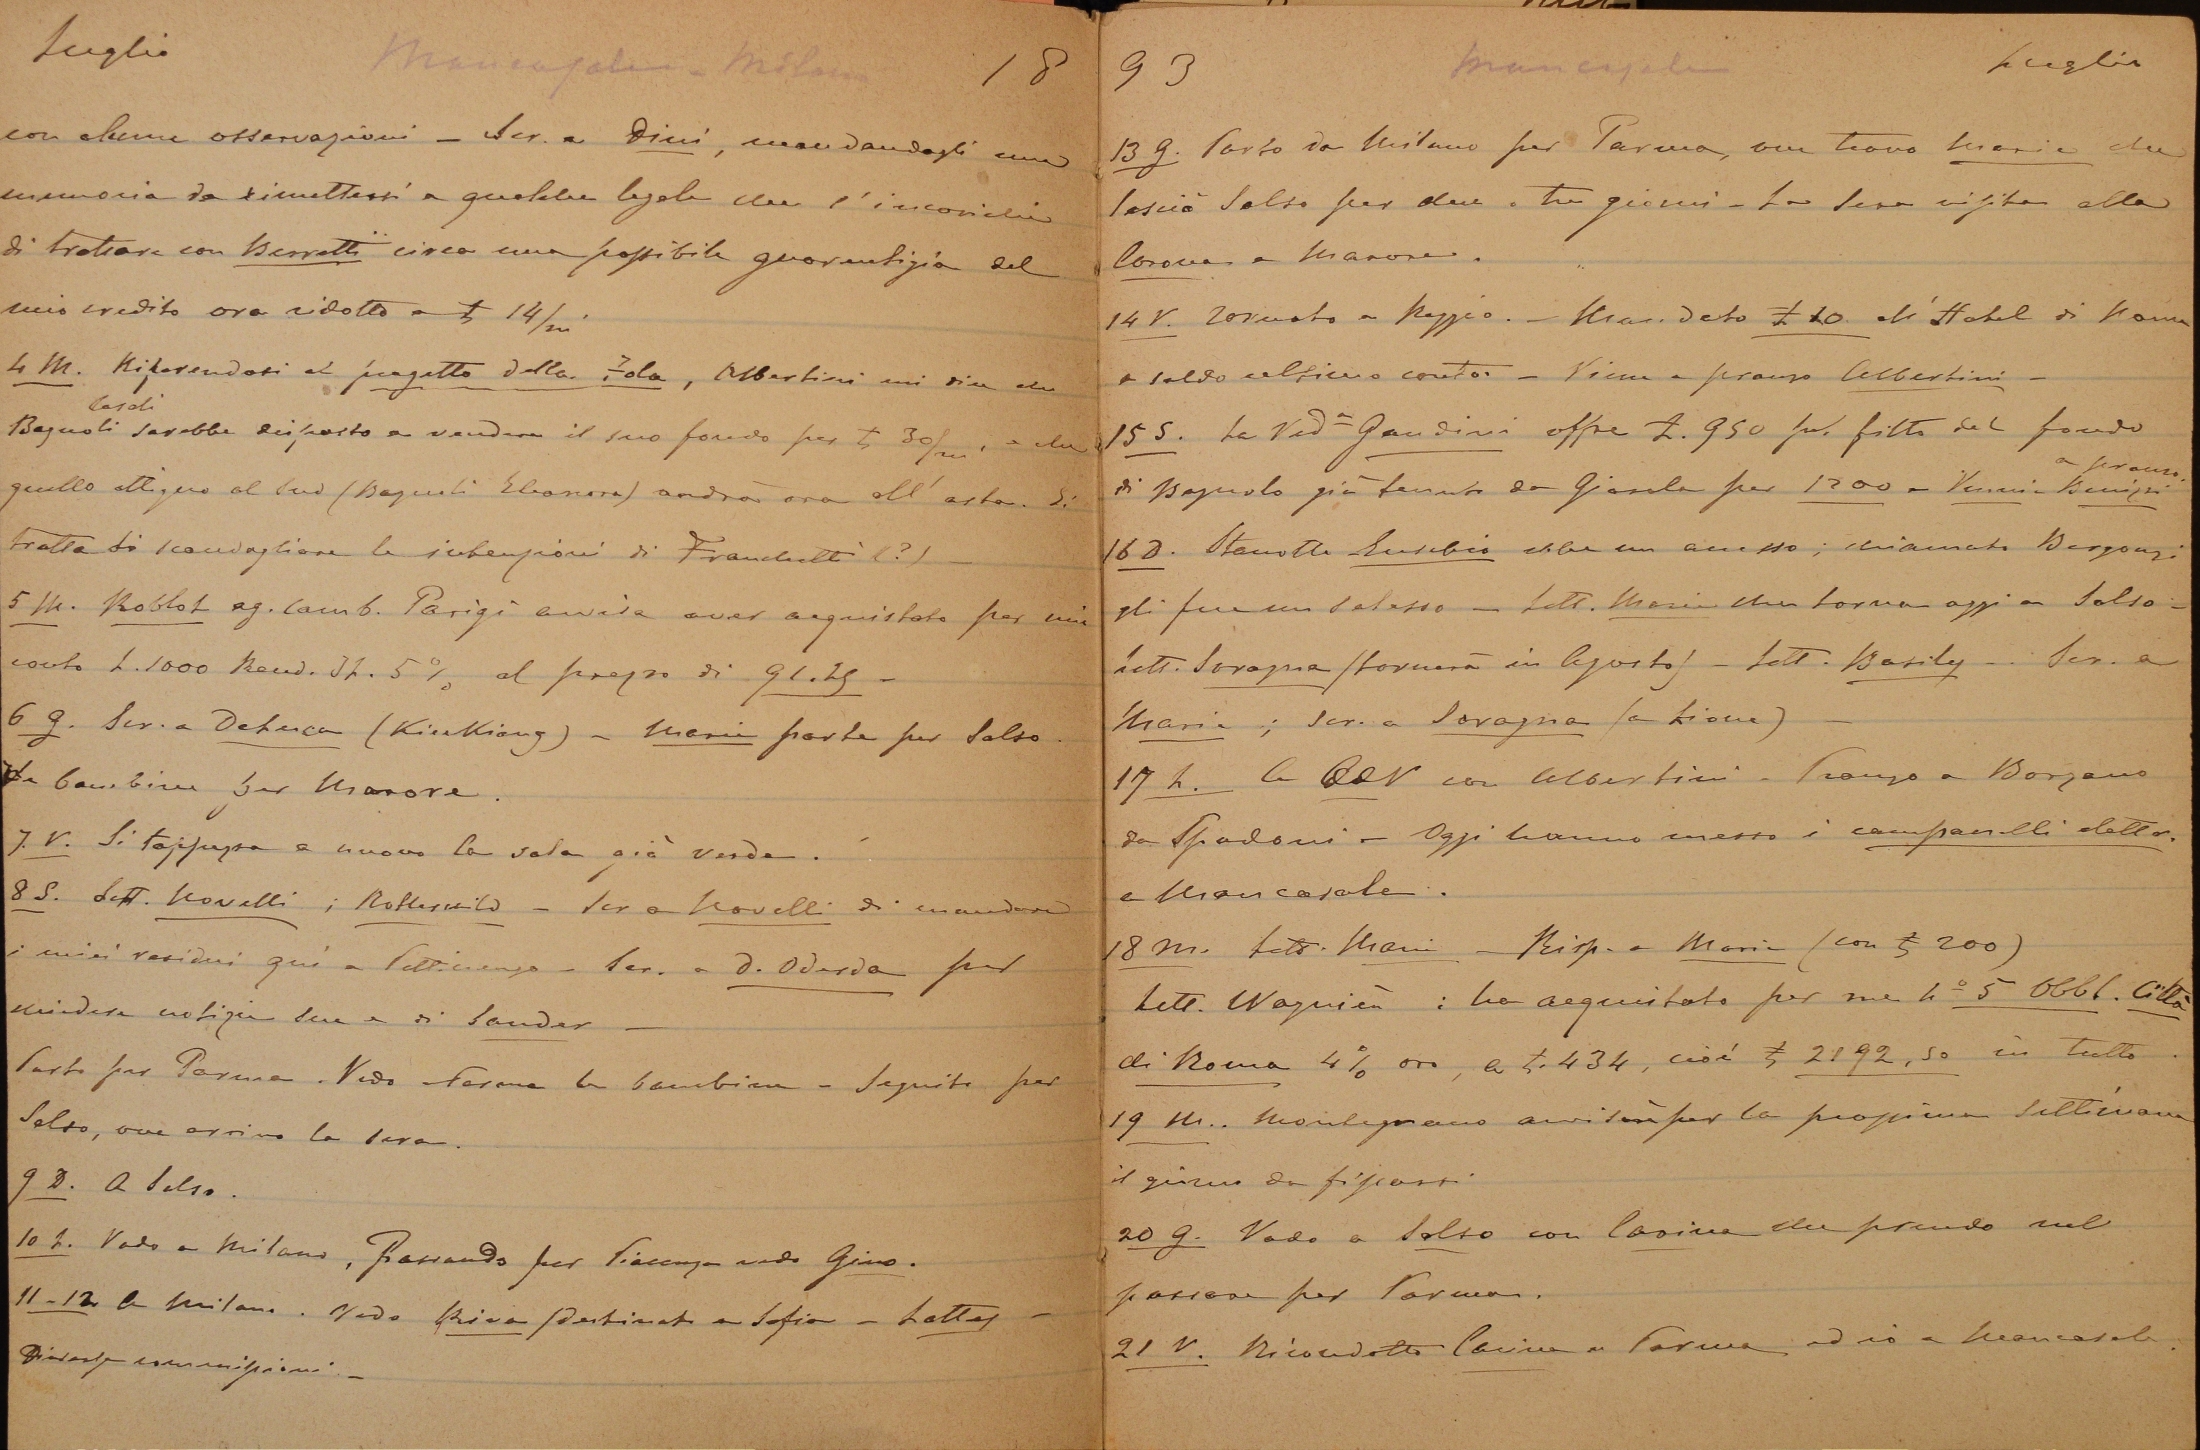 Luglio Mancasale - Milano 18
con alcune osservazioni - Scr. a Dini, mandandogli una
memoria da rimettersi a qualche legale che s'incarichi
di trattare con Berretti circa una possibile guarentigia del
mio credito ora ridotto a £ 14/m
4 M. Riferendosi al progetto della Iola, Albertini mi dice che
Casali
Bagnoli sarebbe disposto a vendere il suo fondo per £ 30/m, e che
quello attiguo al Sud (Bagnoli Eleonora) andrà ora all'asta. Si
tratta di scandagliare le intenzioni di Franchetti (?) -
5 M. Roblot ag. camb. Parigi avvisa aver acquistato per mio
conto L. 1000 Rend. It. 5% al prezzo di 91.25 -
6 G. Scr. a Deluca (KiuKiang) - Maria parte per Salso.
Le bambine per Marore.
7. V. Si tappezza a nuovo la sala già verde.
8 S. Lett. Novelli; Rothschild - Scr a Novelli di mandare
i miei residui qui a - Scr. a D. Oderda per
chiedere notizie sue e di Sander -
Parto per Parma. Vedo a Parma le bambine - Seguito per
Salso, ove arrivo la sera.
9 D. A Salso.
10 L. Vado a Milano, Passando per Piacenza vedo Gino.
11-12 A Milano. Vedo Riva (destinato a Sofia - Lattes -
Diverse commissioni. -
93 Mancasale Luglio
13 G. Parto da Milano per Parma, ove trovo Maria che
lasciò Salso per due o tre giorni - La sera visita alla
Corona a Marore.
14 V. Tornato a Reggio. - Mandato £ 20 all'Hotel di Roma
a saldo ultimo conto. - Viene a pranzo Albertini -
15 S. La Ved.a Gandini offre £. 950 pel fitto del fondo
a pranzo
di Bagnolo già tenuto da Giarola per 1200 - Venni Benizzi
16 D. Stanotte Eusebio ebbe un accesso; chiamato Bergonzi
gli fece un salasso - Lett. Maria che torna oggi a Salso -
Lett. Soragna (tornerà in Agosto) - Lett. Basily - Scr. a
Maria; scr. a Soragna (a Lione) -
17 L. A con Albertini - Pranzo a Borzano
da Spadoni - Oggi hanno messo i campanelli elettr.
a Mancasale.
18 M. Lett. Maria - Risp. a Maria (con £ 200)
Lett. Wagnière: ha acquistato per me No 5 Obbl. Città
di Roma 4% oro, a £. 434, cioè £ 2192,50 in tutto.
19 M. Montegnano avviserà per la prossima settimana
il giorno da fissarsi
20 G. Vado a Salso con Carina che prendo nel
passare per Parma.
21 V. Ricondotto Carina a Parma ed io a Mancasale.